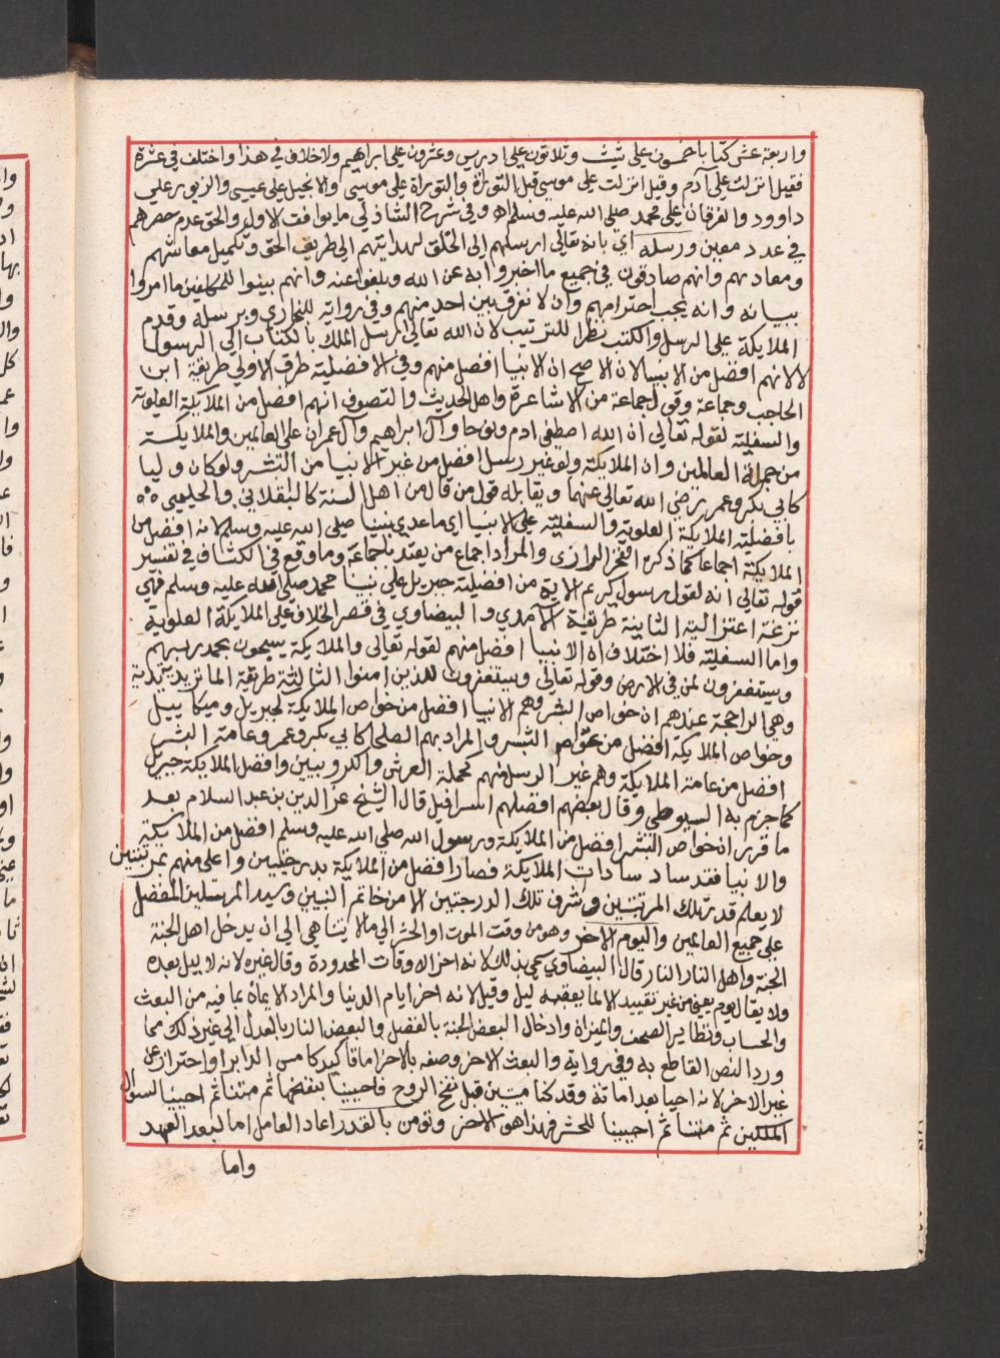 واربعة عشر كتبا باخمسون على شيث وثلاثون على ادريس وعشرون على ابراهيم ولا خلاف في هذا واختلف في عشرة
فقيل انزلت على آدم وقيل انزلت على موسى قبل التوراة والتوراة على موسى والانجيل على عيسى والزبور على
داوود والفرقان على محمد صلى الله عليه وسلم اه وفي شرح الشاذلي ما يوافق الاول والحق عدم حصرهم
في عدد معين ورسله اي بانه تعالى ارسلهم الى الخلق لهدايتهم الى طريق الحق وتكميل معاشهم
ومعادهم وانهم صادقون في جميع ما اخبروا به عن الله وبلغوا عنه وانهم بينوا للمكلفين ما امروا
ببيانه وانه يجب احترامهم وان لا نفرق بين احد منهم وفي رواية للبخاري وبرسله وقدم
الملايكة على الرسل والكتب نظرا للترتيب لان الله تعالى ارسل الملك بالكتاب الى الرسول
لا لانهم افضل من الانبيا لان الاصح ان الانبيا افضل منهم وفي الافضلية طرق الاولى طريقة ابن
الحاجب وجماعة وقول جماعة من الاشاعرة واهل الحديث والتصوف انهم افضل من الملائكة العلوية
والسفلية لقوله تعالى ان الله اصطفى ادم ونوحا وآل ابراهيم وآل عمران على العالمين والملايكة
من جملة العالمين وان الملايكة ولو غير رسل افضل من غير الانبيا من البشر ولو كان وليا
كابي بكر وعمر رضي الله تعالى عنهما ويقابله قول من قال من اهل السنة كالباقلاني والحليمي
بافضلية الملايكة العلوية والسفلية على الانبيا اي ما عدى نبينا صلى الله عليه وسلم لانه افضل من
الملايكة اجماعا كما ذكره الفخر الرازي والمراد اجماع من يعتد باجماعه وما وقع في الكشاف في تفسير
قوله تعالى انه لقول رسول كريم الاية من افضلية جبريل على نبينا محمد صلى الله عليه وسلم فهي
نزعة اعتزالية الثانية طريقة الآمدي والبيضاوي في قصر الخلاف على الملايكة العلوية
واما السفلية فلا اختلاف ان الانبيا افضل منهم لقوله تعالى والملايكة يسبحون بحمد ربهم
ويستغفرون لمن في الارض وقوله تعالى ويستغفرون للذين امنوا الثالثة طريقة الماتريدية
وهي الراجحة عندهم ان خواص البشر وهم الانبيا افضل من خواص الملايكة كجبريل وميكاييل
وخواص الملايكة افضل من عوام البشر والمراد بهم الصلحا كابي بكر وعمر وعامة البشر
افضل من عامة الملايكة وهم غير الرسل منهم كحملة العرش والكروبيين وافضل الملايكة جبريل
كما جزم به السيوطي وقال بعضهم افضلهم اسرافيل قال الشيخ عز الدين بن عبد السلام بعد
ما قرر ان خواص البشر افضل من الملايكة ورسول الله صلى الله عليه وسلم افضل من الملايكة
والانبيا فقد ساد سادات الملايكة فصار افضل من الملايكة بدرجتين واعلى منهم بمرتبتين
لا يعلم قدر تلك المرتبتين وشرف تلك الدرجتين الا من خاتم النبيين وسيد المرسلين المفضل
على جميع العالمين واليوم الاخر وهو من وقت الموت او الحشر الى ما لا يتناهى الى ان يدخل اهل الجنة
الجنة واهل النار النار قال البيضاوي سمي بذلك لانه اخر الاوقات المحدودة وقال غيره لانه لا ليل بعده
ولا يقال يوم يعني من غير تقييد الا لما يعقبه ليل وقيل لانه اخر ايام الدنيا والمراد الايمان بما فيه من البعث
والحساب وتطاير الصحف والميزان وادخال البعض الجنة بالفضل والبعض النار بالعدل الى غير ذلك مما
ورد النص القاطع به وفي رواية والبعث الاخر وصفه بالاخر اما تاكيد كامس الدابر او احتراز عن
غير الاخر لانه احيا بعد اماتة وقد كنا ميتين قبل نفخ الروح فاحيينا بنفخها ثم متنا ثم احيينا لسوال
الملكين ثم متنا ثم احيينا للحشر فهذا هو الاخر وتومن بالقدر اعاد العامل اما لبعد العهد
واما